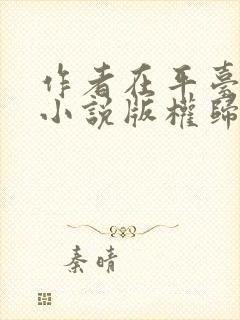 作者在平臺
小説版權歸
秦晴